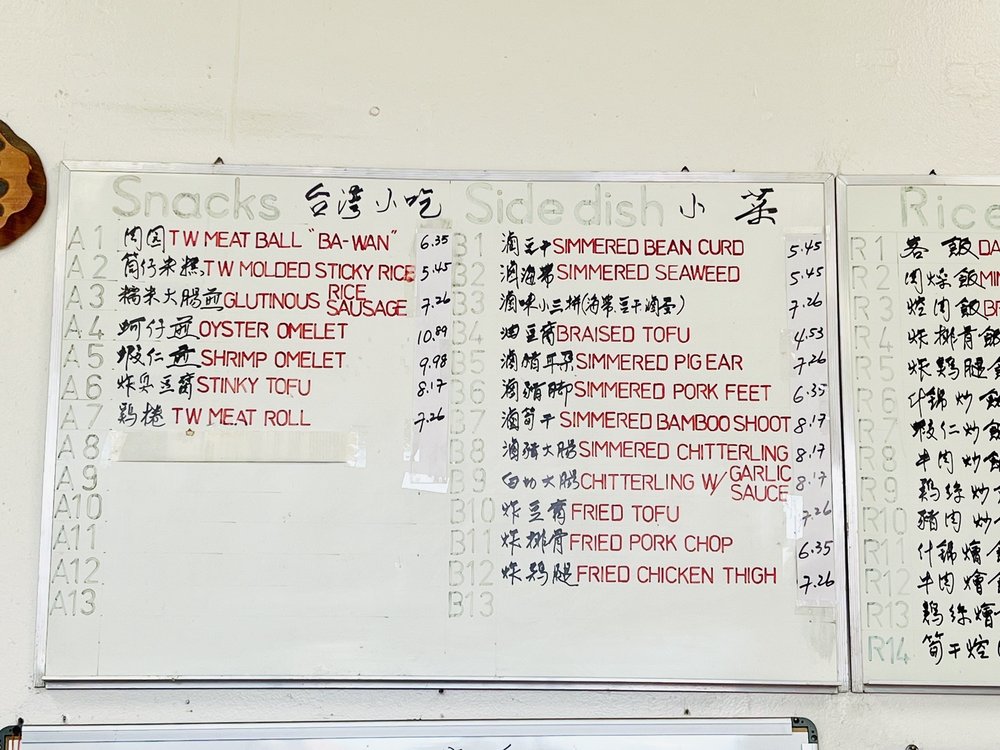 Snacks 台湾小吃
A1 肉圆 TW MEAT BALL "BA-WAN" 6.35
A2 筒仔米糕 TW MOLDED STICKY RICE 5.45
A3 糯米大腸煎 GLUTINOUS RICE SAUSAGE 7.26
A4 蚵仔煎 OYSTER OMELET 10.89
A5 蝦仁煎 SHRIMP OMELET 9.98
A6 炸臭豆腐 STINKY TOFU 8.17
A7 鷄捲 TW MEAT ROLL 7.26
A8
A9
A10
A11
A12
A13
Side dish 小菜
B1 滷豆干 SIMMERED BEAN CURD 5.45
B2 滷海帯 SIMMERED SEAWEED 5.45
B3 滷味小三拼(海帯豆干滷蛋) 7.26
B4 油豆腐 BRAISED TOFU 4.53
B5 滷猪耳朶 SIMMERED PIG EAR 7.26
B6 滷猪脚 SIMMERED PORK FEET 6.35
B7 滷筍干 SIMMERED BAMBOO SHOOT 8.17
B8 滷猪大腸 SIMMERED CHITTERLING 8.17
B9 白切大腸 CHITTERLING W/ GARLIC SAUCE 8.17
B10 炸豆腐 FRIED TOFU 7.26
B11 炸排骨 FRIED PORK CHOP 6.35
B12 炸鷄腿 FRIED CHICKEN THIGH 7.26
B13
Rice
R1 客飯 DA
R2 肉燥飯 MIN
R3 控肉飯 BR
R4 炸排骨飯
R5 炸鷄腿
R6 什錦炒飯
R7 蝦仁炒飯
R8 牛肉炒飯
R9 鷄絲炒
R10 豬肉炒
R11 什錦燴
R12 牛肉燴
R13 鷄絲燴
R14 筍干控